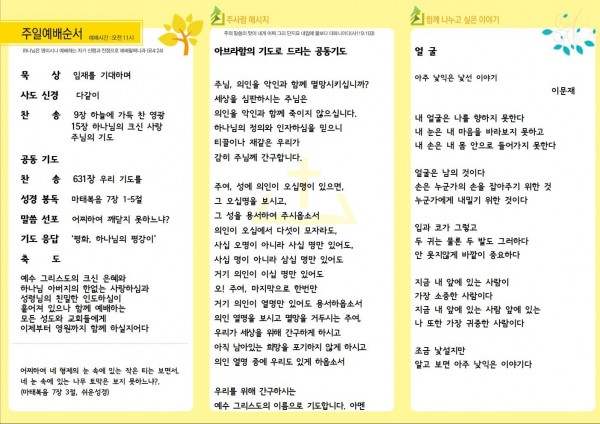 주일예배순서 예배시간 : 오전 11시
하나님은 영이시니 예배하는 자가 신령과 진정으로 예배할찌니라 (요4:24)
묵 상 임재를 기대하며
사도 신경 다같이
찬 송 9장 하늘에 가득 찬 영광
15장 하나님의 크신 사랑
주님의 기도
공동 기도
찬 송 631장 우리 기도를
성경 봉독 마태복음 7장 1-5절
말씀 선포 어찌하여 깨닫지 못하느냐?
기도 응답 '평화, 하나님의 평강이'
축 도
예수 그리스도의 크신 은혜와
하나님 아버지의 한없는 사랑하심과
성령님의 친밀한 인도하심이
흩어져 있으나 함께 예배하는
모든 성도와 교회들에게
이제부터 영원까지 함께 하실지어다
어찌하여 네 형제의 눈 속에 있는 작은 티는 보면서,
네 눈 속에 있는 나무 토막은 보지 못하느냐?.
(마태복음 7장 3절, 쉬운성경)
주사랑 메시지
주의 말씀의 맛이 내게 어찌 그리 단지요 내입에 꿀보다 더하니이다(시119:103)
아브라함의 기도로 드리는 공동기도
주님, 의인을 악인과 함께 멸망시키십니까?
세상을 심판하시는 주님은
의인을 악인과 함께 죽이지 않으십니다.
하나님의 정의와 인자하심을 믿으니
티끌이나 재같은 우리가
감히 주님께 간구합니다.
주여, 성에 의인이 오십명이 있으면,
그 오십명을 보시고,
그 성을 용서하여 주시옵소서
의인이 오십에서 다섯이 모자라도,
사십 오명이 아니라 사십 명만 있어도,
사십 명이 아니라 삼십 명만 있어도
거기 의인이 이십 명만 있어도
오! 주여, 마지막으로 한번만
거기 의인이 열명만 있어도 용서하옵소서
의인 열명을 보시고 멸망을 거두시는 주여,
우리가 세상을 위해 간구하게 하시고
아직 남아있는 희망을 포기하지 않게 하시고
의인 열명 중에 우리도 있게 하옵소서
우리를 위해 간구하시는
예수 그리스도의 이름으로 기도합니다. 아멘
함께 나누고 싶은 이야기
얼 굴
아주 낯익은 낯선 이야기
이문재
내 얼굴은 나를 향하지 못한다
내 눈은 내 마음을 바라보지 못하고
내 손은 내 몸 안으로 들어가지 못한다
얼굴은 남의 것이다
손은 누군가의 손을 잡아주기 위한 것
누군가에게 내밀기 위한 것이다
입과 코가 그렇고
두 귀는 물론 두 발도 그러하다
안 못지않게 바깥이 중요하다
지금 내 앞에 있는 사람이
가장 소중한 사람이다
지금 내 앞에 있는 사람 앞에 있는
나 또한 가장 귀중한 사람이다
조금 낯설지만
알고 보면 아주 낯익은 이야기다